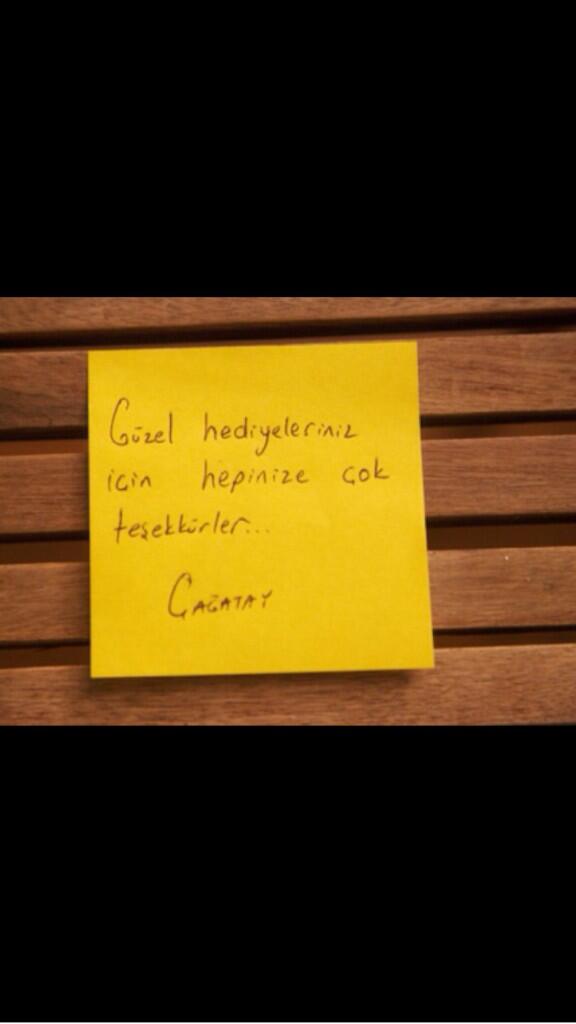 Güzel hediyeleriniz
için hepinize çok
teşekkürler...
ÇAĞATAY